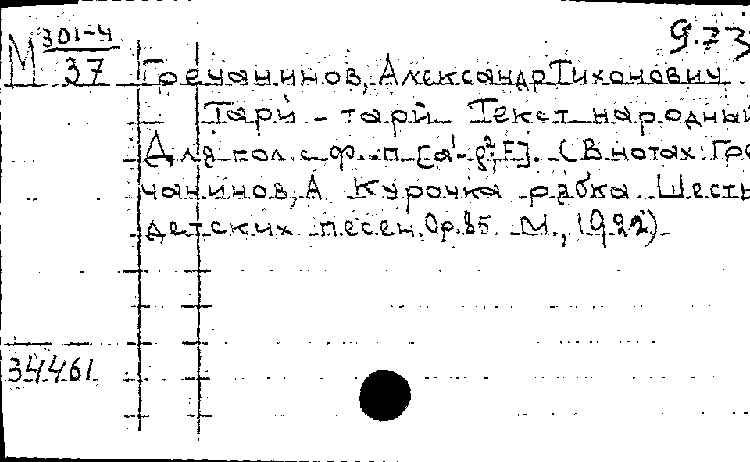 М 301-4
37
9.73
Гречанинов, Александр Тихонович
Тари - тари Текст народный
Для гол. с ф.-п. [a¹-g²; F]. (В нотах: Гре
чанинов, А Курочка рябка Шесть
детских песен. Ор. 85 М., 1922)
34461